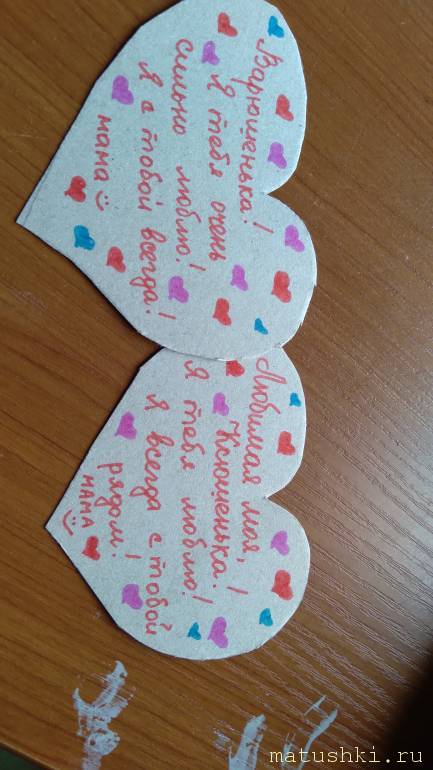 Варюшенька!
Я тебя очень
сильно люблю!
Я с тобой всегда!
мама
Любимая моя,
Ксюшенька!
Я тебя люблю!
я всегда с тобой
рядом!
мама
matushki.ru